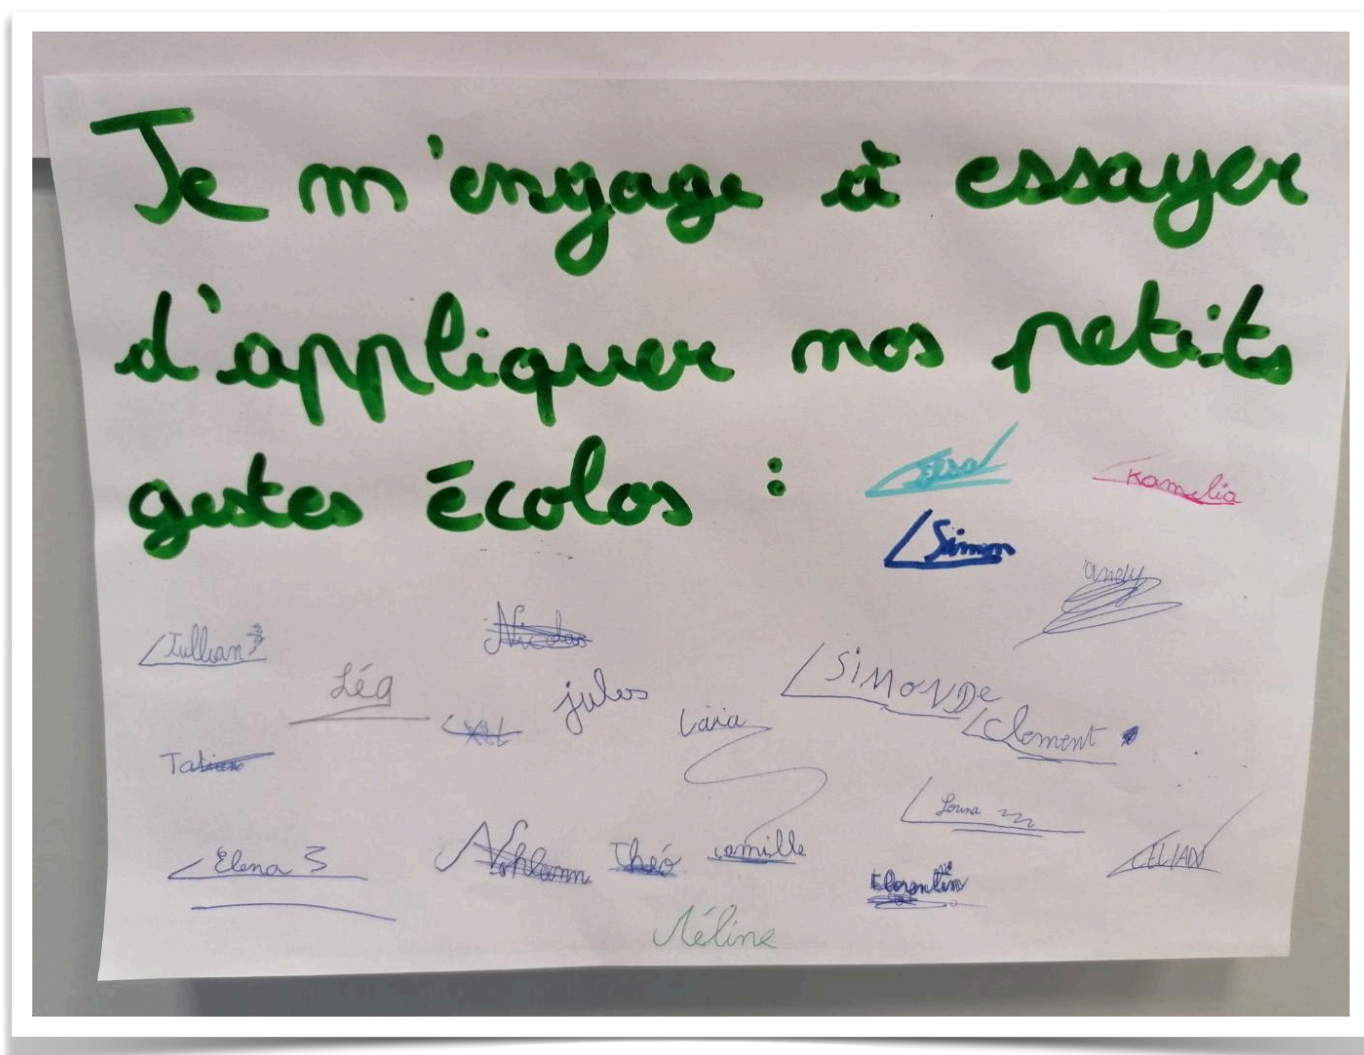 Je m'engage à essayer
d'appliquer nos petits
gestes écolos :
Kamelia
Simon
andy
Jullian
Nicolas
Léa
jules
SIMONDE
Clement
Tatiana
Louna
Elena
Théo
camille
Florentin
CELIAN